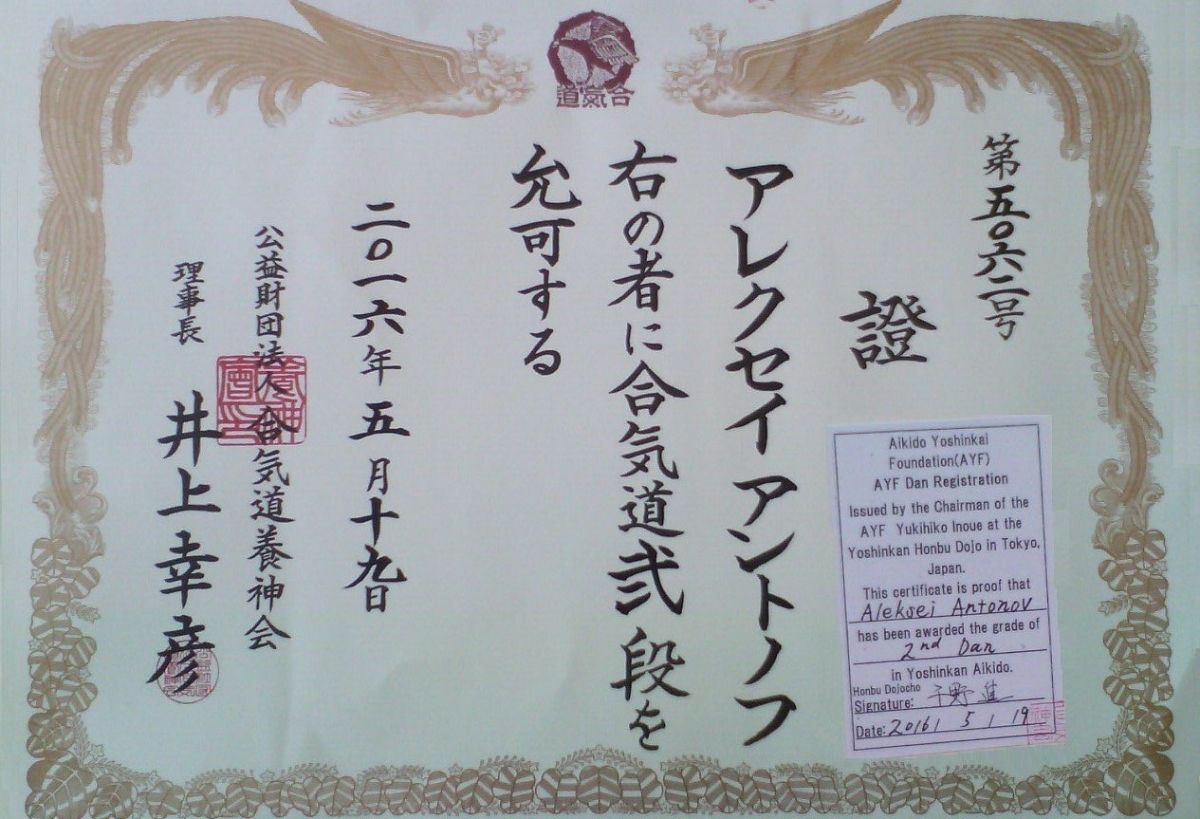 道氣合
第五〇六二号
證
アレクセイ アントノフ
右の者に合気道弐段を
允可する
二〇一六年五月十九日
公益財団法人合気道養神会
理事長 井上幸彦
Aikido Yoshinkai
Foundation(AYF)
AYF Dan Registration
Issued by the Chairman of the
AYF Yukihiko Inoue at the
Yoshinkan Honbu Dojo in Tokyo,
Japan.
This certificate is proof that
Aleksei Antonov
has been awarded the grade of
2nd Dan
in Yoshinkan Aikido.
Honbu Dojocho
Signature:
Date: 2016 / 5 / 19